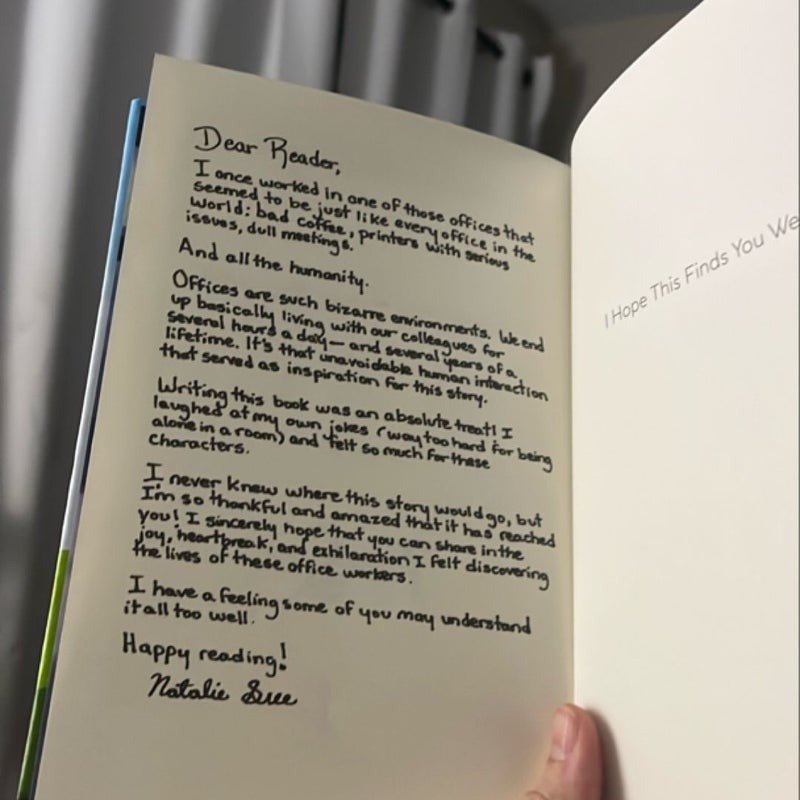 Dear Reader,
I once worked in one of those offices that
seemed to be just like every office in the
world: bad coffee, printers with serious
issues, dull meetings.
And all the humanity.
Offices are such bizarre environments. We end
up basically living with our colleagues for
several hours a day— and several years of a
lifetime. It's that unavoidable human interaction
that served as inspiration for this story.
Writing this book was an absolute treat! I
laughed at my own jokes (way too hard for being
alone in a room) and felt so much for these
characters.
I never knew where this story would go, but
I'm so thankful and amazed that it has reached
you! I sincerely hope that you can share in the
joy, heartbreak, and exhilaration I felt discovering
the lives of these office workers.
I have a feeling some of you may understand
it all too well.
Happy reading!
Natalie Sue
I Hope This Finds You We